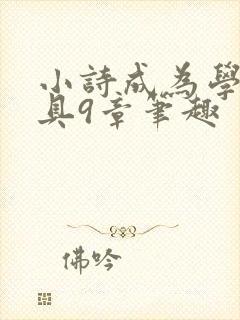 小詩成為學
具9章筆趣
佛吟